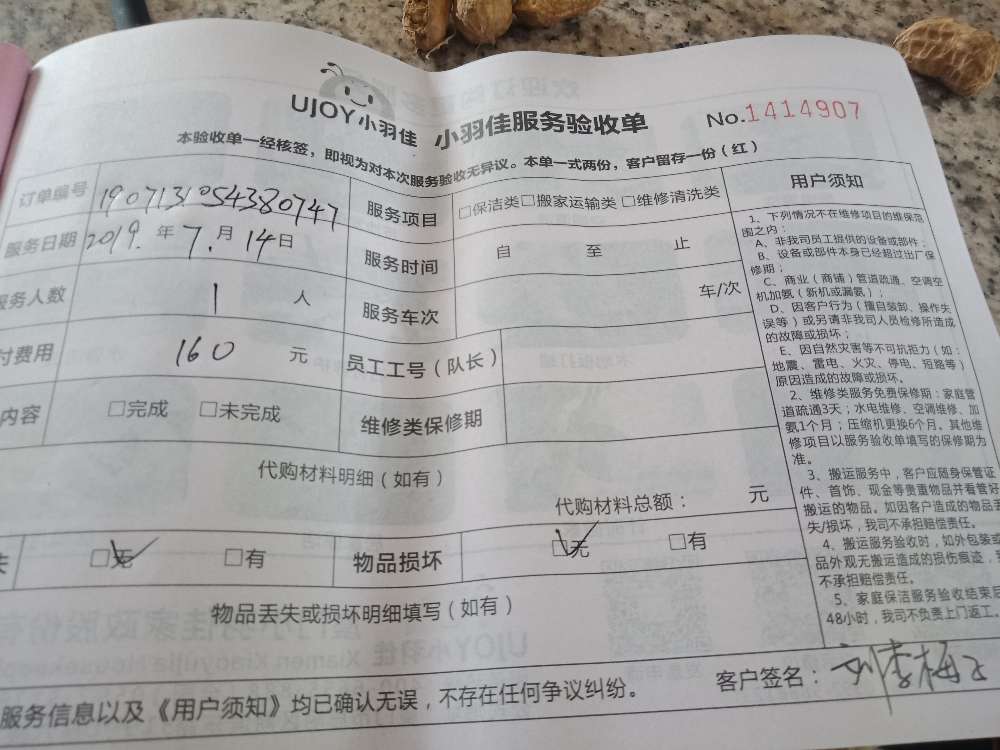 UJOY小羽佳 小羽佳服务验收单 No.1414907
本验收单一经核签，即视为对本次服务验收无异议。本单一式两份，客户留存一份（红）
订单编号 190713105438074７ 服务项目 □保洁类□搬家运输类 □维修清洗类
服务日期 2019. 年 7. 月 14日 服务时间 自 至 止
服务人数 1 人 服务车次 车/次
付费用 160 元 员工工号（队长）
内容 □完成 □未完成 维修类保修期
代购材料明细（如有）
代购材料总额： 元
失 □无 □有 物品损坏 □无 □有
物品丢失或损坏明细填写（如有）
服务信息以及《用户须知》均已确认无误，不存在任何争议纠纷。 客户签名：
用户须知
1、下列情况不在维修项目的维保范
围之内：
A、非我司员工提供的设备或部件；
B、设备或部件本身已经超过出厂保
修期；
C、商业（商铺）管道疏通、空调空
机加氨（新机或漏氨）；
D、因客户行为（擅自装卸、操作失
误等）或另请非我司人员检修所造成
的故障或损坏；
E、因自然灾害等不可抗拒力（如：
地震、雷电、火灾、停电、短路等）
原因造成的故障或损坏。
2、维修类服务免费保修期：家庭管
道疏通3天；水电维修、空调维修、加
氨1个月；压缩机更换6个月。其他维
修项目以服务验收单填写的保修期为
准。
3、搬运服务中，客户应随身保管证
件、首饰、现金等贵重物品并看管好
搬运的物品。如因客户造成的物品丢
失/损坏，我司不承担赔偿责任。
4、搬运服务验收时，如外包装或
品外观无搬运造成的损伤痕迹，
不承担赔偿责任。
5、家庭保洁服务验收结束后
48小时，我司不负责上门返工。